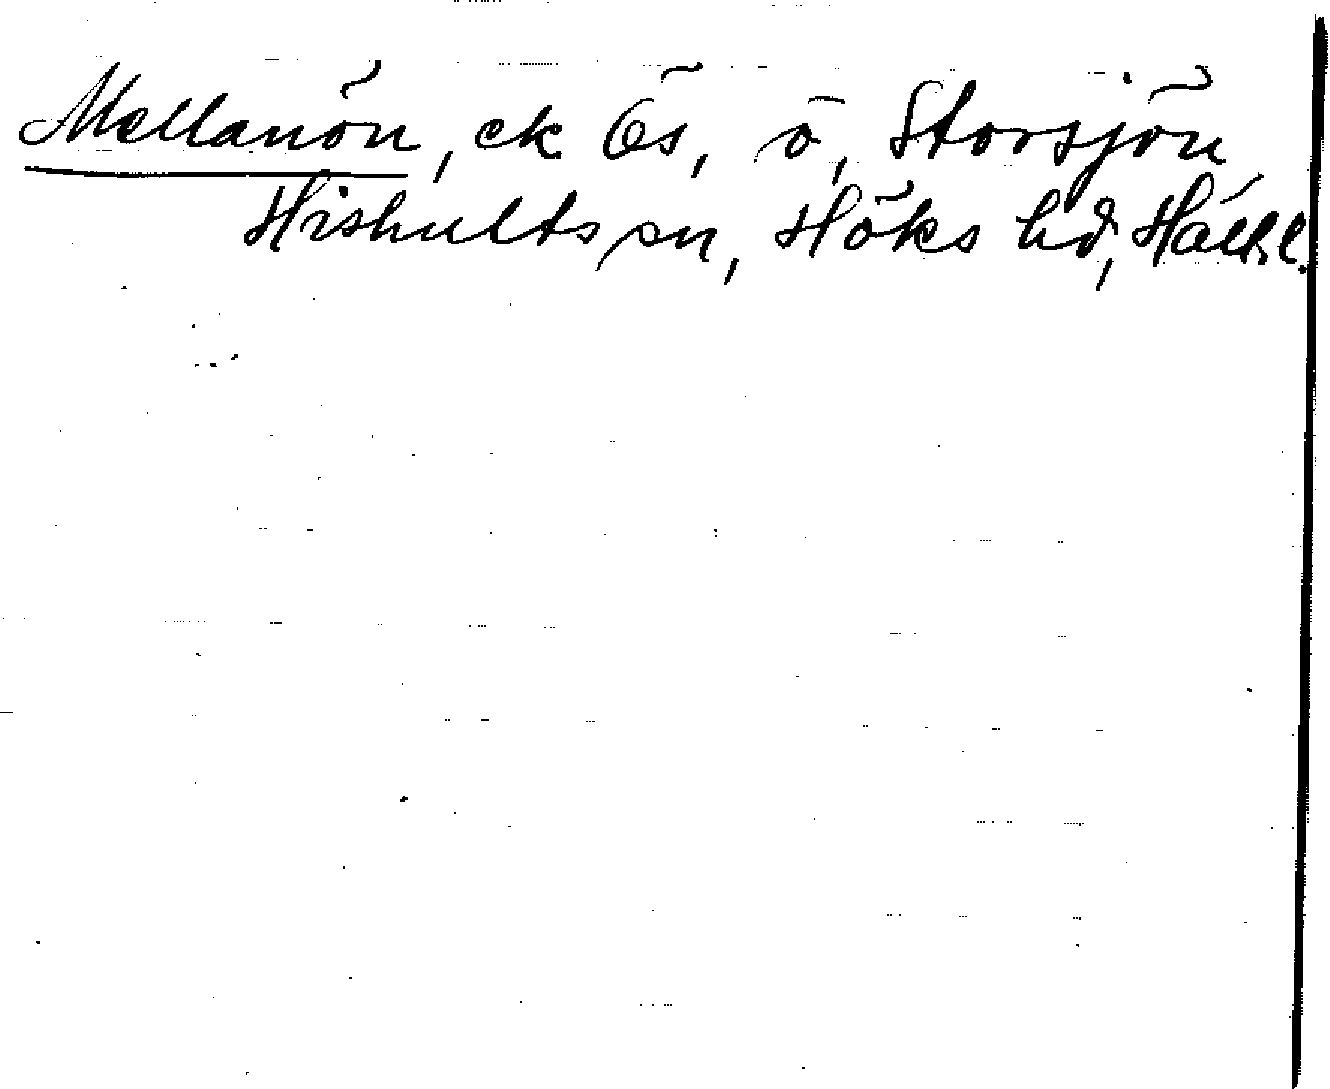 Mellanön, ek Ös, ö, Storsjön
Hishults sn, Höks hd, Halls l.